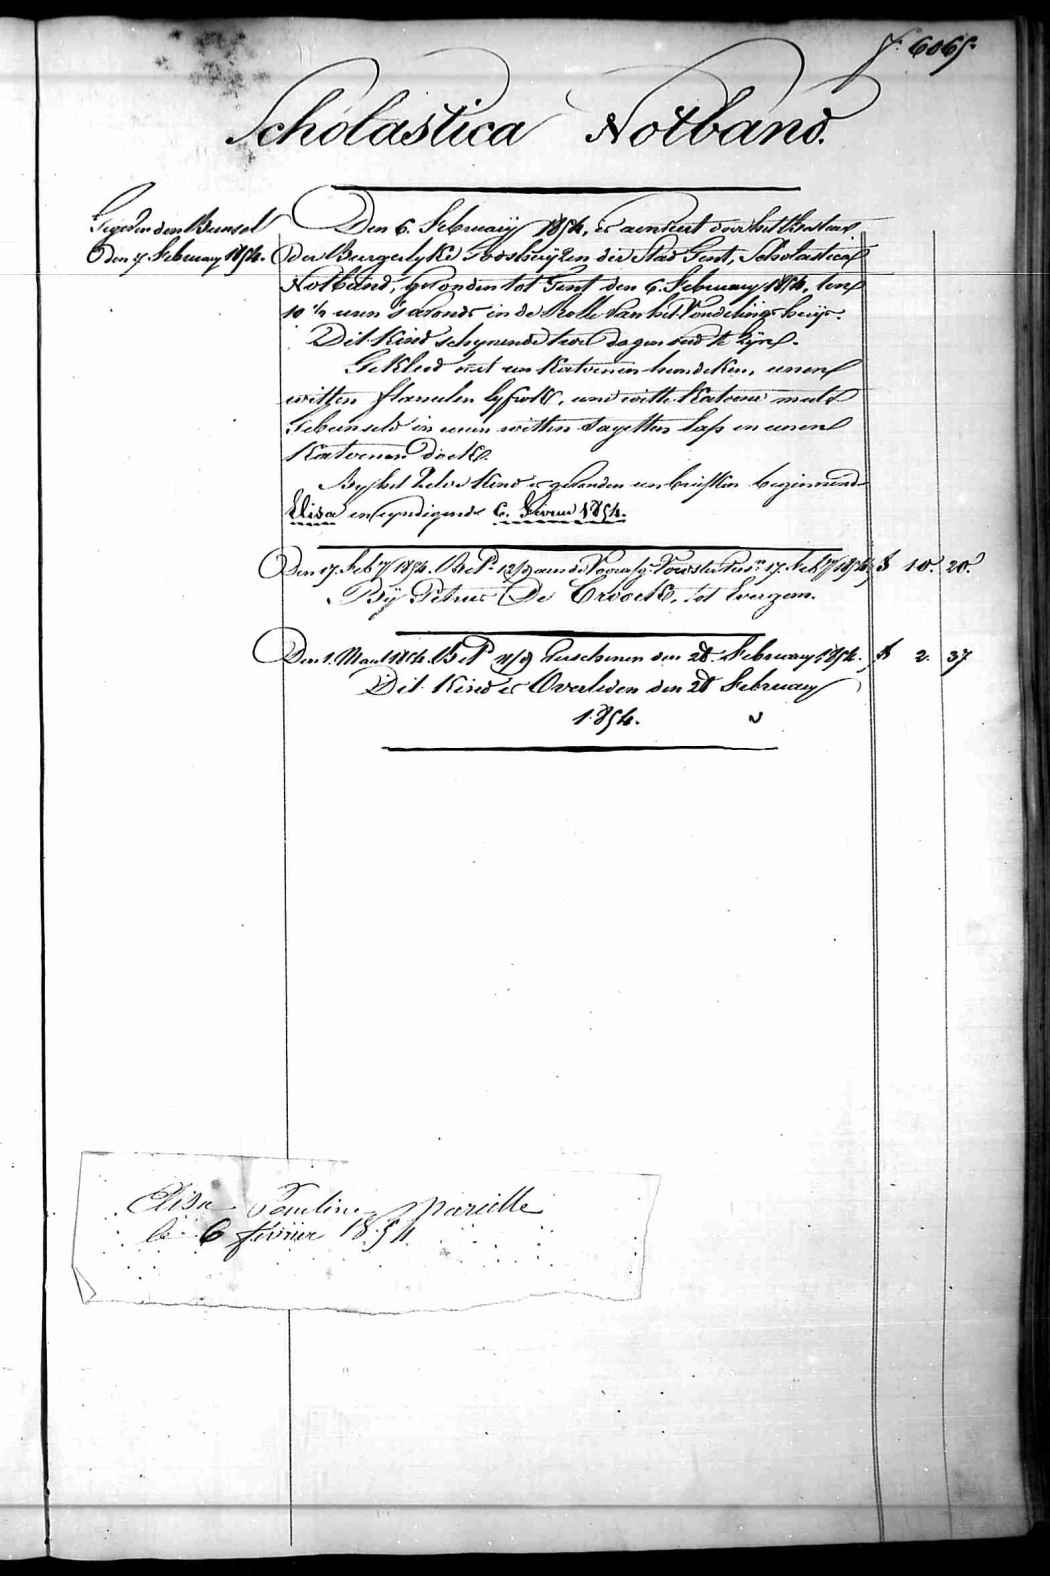 f. 6065.
Scholastica Notband.
Den 6. February 1854, is aenveert door het Bestuer
der Burgerlyke Godshuyzen der Stad Gent, Scholastica
Notband, gevonden tot Gent den 6. February 1854, ten
10 ½ uren 's avonds in de Rolle van het Vondelingshuys.
Dit Kind schynende twee dagen oud te zyn.
Gekleed met een Katoenen hemdeken, eenen
witten flanelen lyfrok, une witte Katoene muts
Gebunseld in eenen witten sayetten lap en eenen
Katoenen doek.
By het zelve Kind is gevonden een briefken beginnende
Elisa en eyndigende 6. Fevrier 1854.
Gegeven den Bunsel
den 7 February 1854.
Den 17. Feb.y 1854. Bet.d 12/9 aen de 17. Feb.y 1854, 10. 20.
By Petrus De Croock, tot Evergem.
Den 1. Maert 1854. Bet.d verschenen den 28. February 1854. 2. 37
Dit Kind is Overleden den 28 February
1854.
Elisa Pauline Mareille
le 6 février 1854